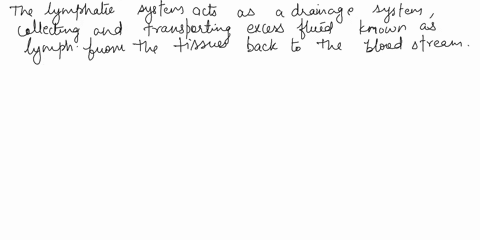 The lymphatic system acts as a drainage system,
collecting and transporting excess fluid known as
lymph from the tissues back to the blood stream.